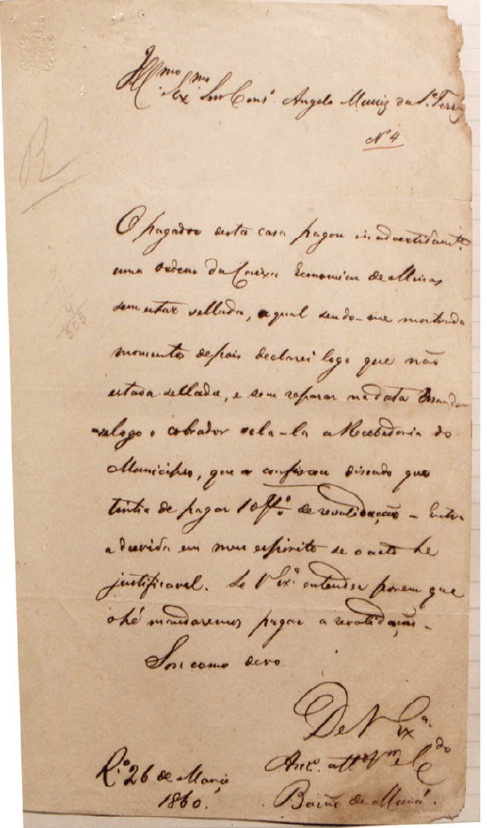 Illmo Exmo Snr Consº Angelo Muniz da Sª Ferraz
Nº 4
R
O pagador desta casa pagou inadvertidamte
uma ordem da Caixa Economica de Minas
sem estar sellada, a qual sendo-me mostrada
momentos depois declarei logo que não
estava sellada, e sem reparar na data mandou
se logo o cobrador sela-la a Recebedoria do
Municipio, que a confiscou dizendo que
tinha de pagar 10 de revalidação - Entra
a duvida em meu espirito se o acto he
justificavel. Se V Exª entender porem que
o hé mandaremos pagar a revalidação -
Sou como devo
De V Exª
Amº attº Vor e Cdo
Rº 26 de Março
1860.
Barão de Mauá.